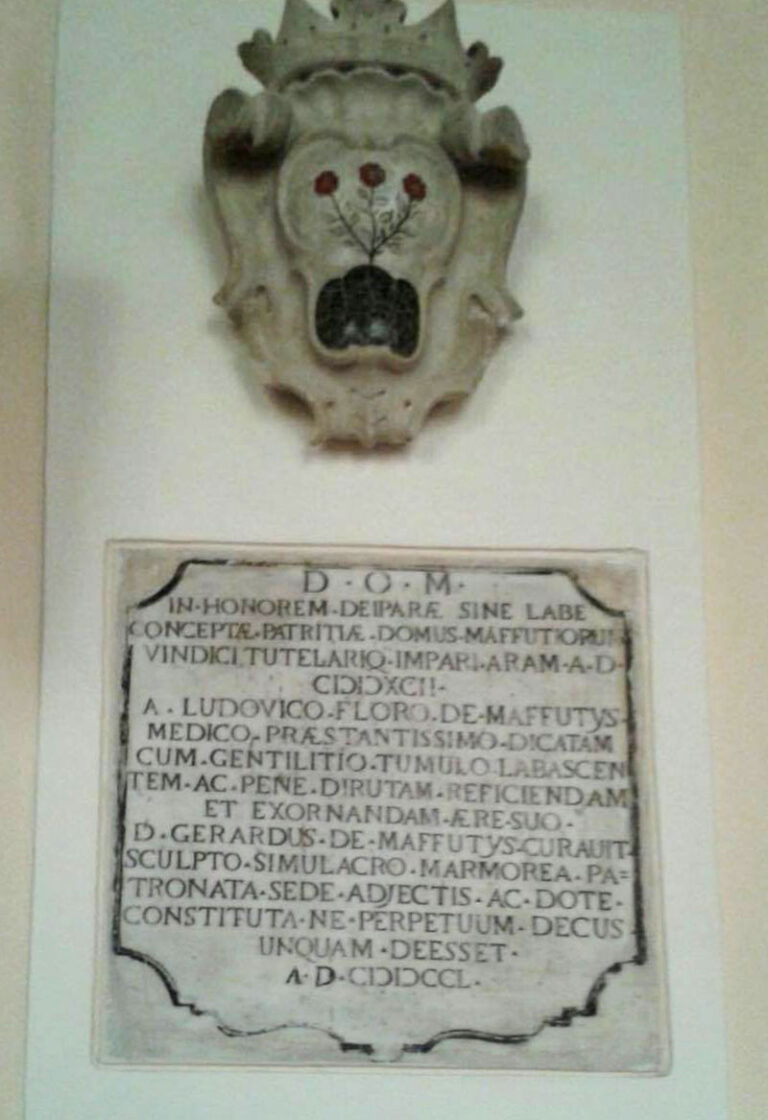 D·O·M·
IN·HONOREM·DEIPARÆ SINE LABE
CONCEPTÆ·PATRITIÆ·DOMUS·MAFFUTIORUM
VINDICI·TUTELARIQ·IMPARI·ARAM·A·D·
CIƆIƆXCII·
A·LUDOVICO·FLORO·DE·MAFFUTYS·
MEDICO·PRÆSTANTISSIMO·DICATAM
CUM·GENTILITIO·TUMULO LABASCEN
TEM·AC·PENE·DIRUTAM·REFICIENDAM
ET EXORNANDAM·ÆRE·SUO·
D·GERARDUS·DE·MAFFUTYS·CURAUIT·
SCULPTO·SIMULACRO·MARMOREA·PA=
TRONATA·SEDE·ADJECTIS·AC·DOTE·
CONSTITUTA·NE·PERPETUUM·DECUS
UNQUAM·DEESSET·
A·D·CIƆIƆCCL·